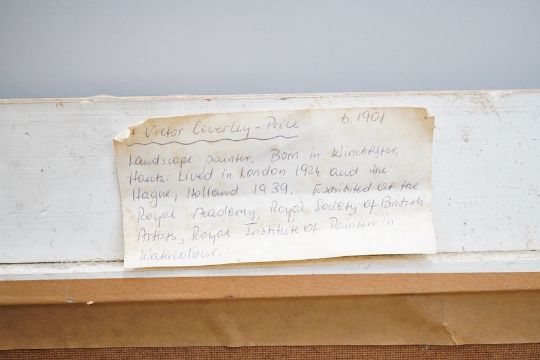 + Victor Coverley-Price b.1901
Landscape painter. Born in Winchester,
Hants. Lived in London 1924 and the
Hague, Holland 1939. Exhibited at the
Royal Academy, Royal Society of British
Artists, Royal Institute of Painters in
Watercolour.